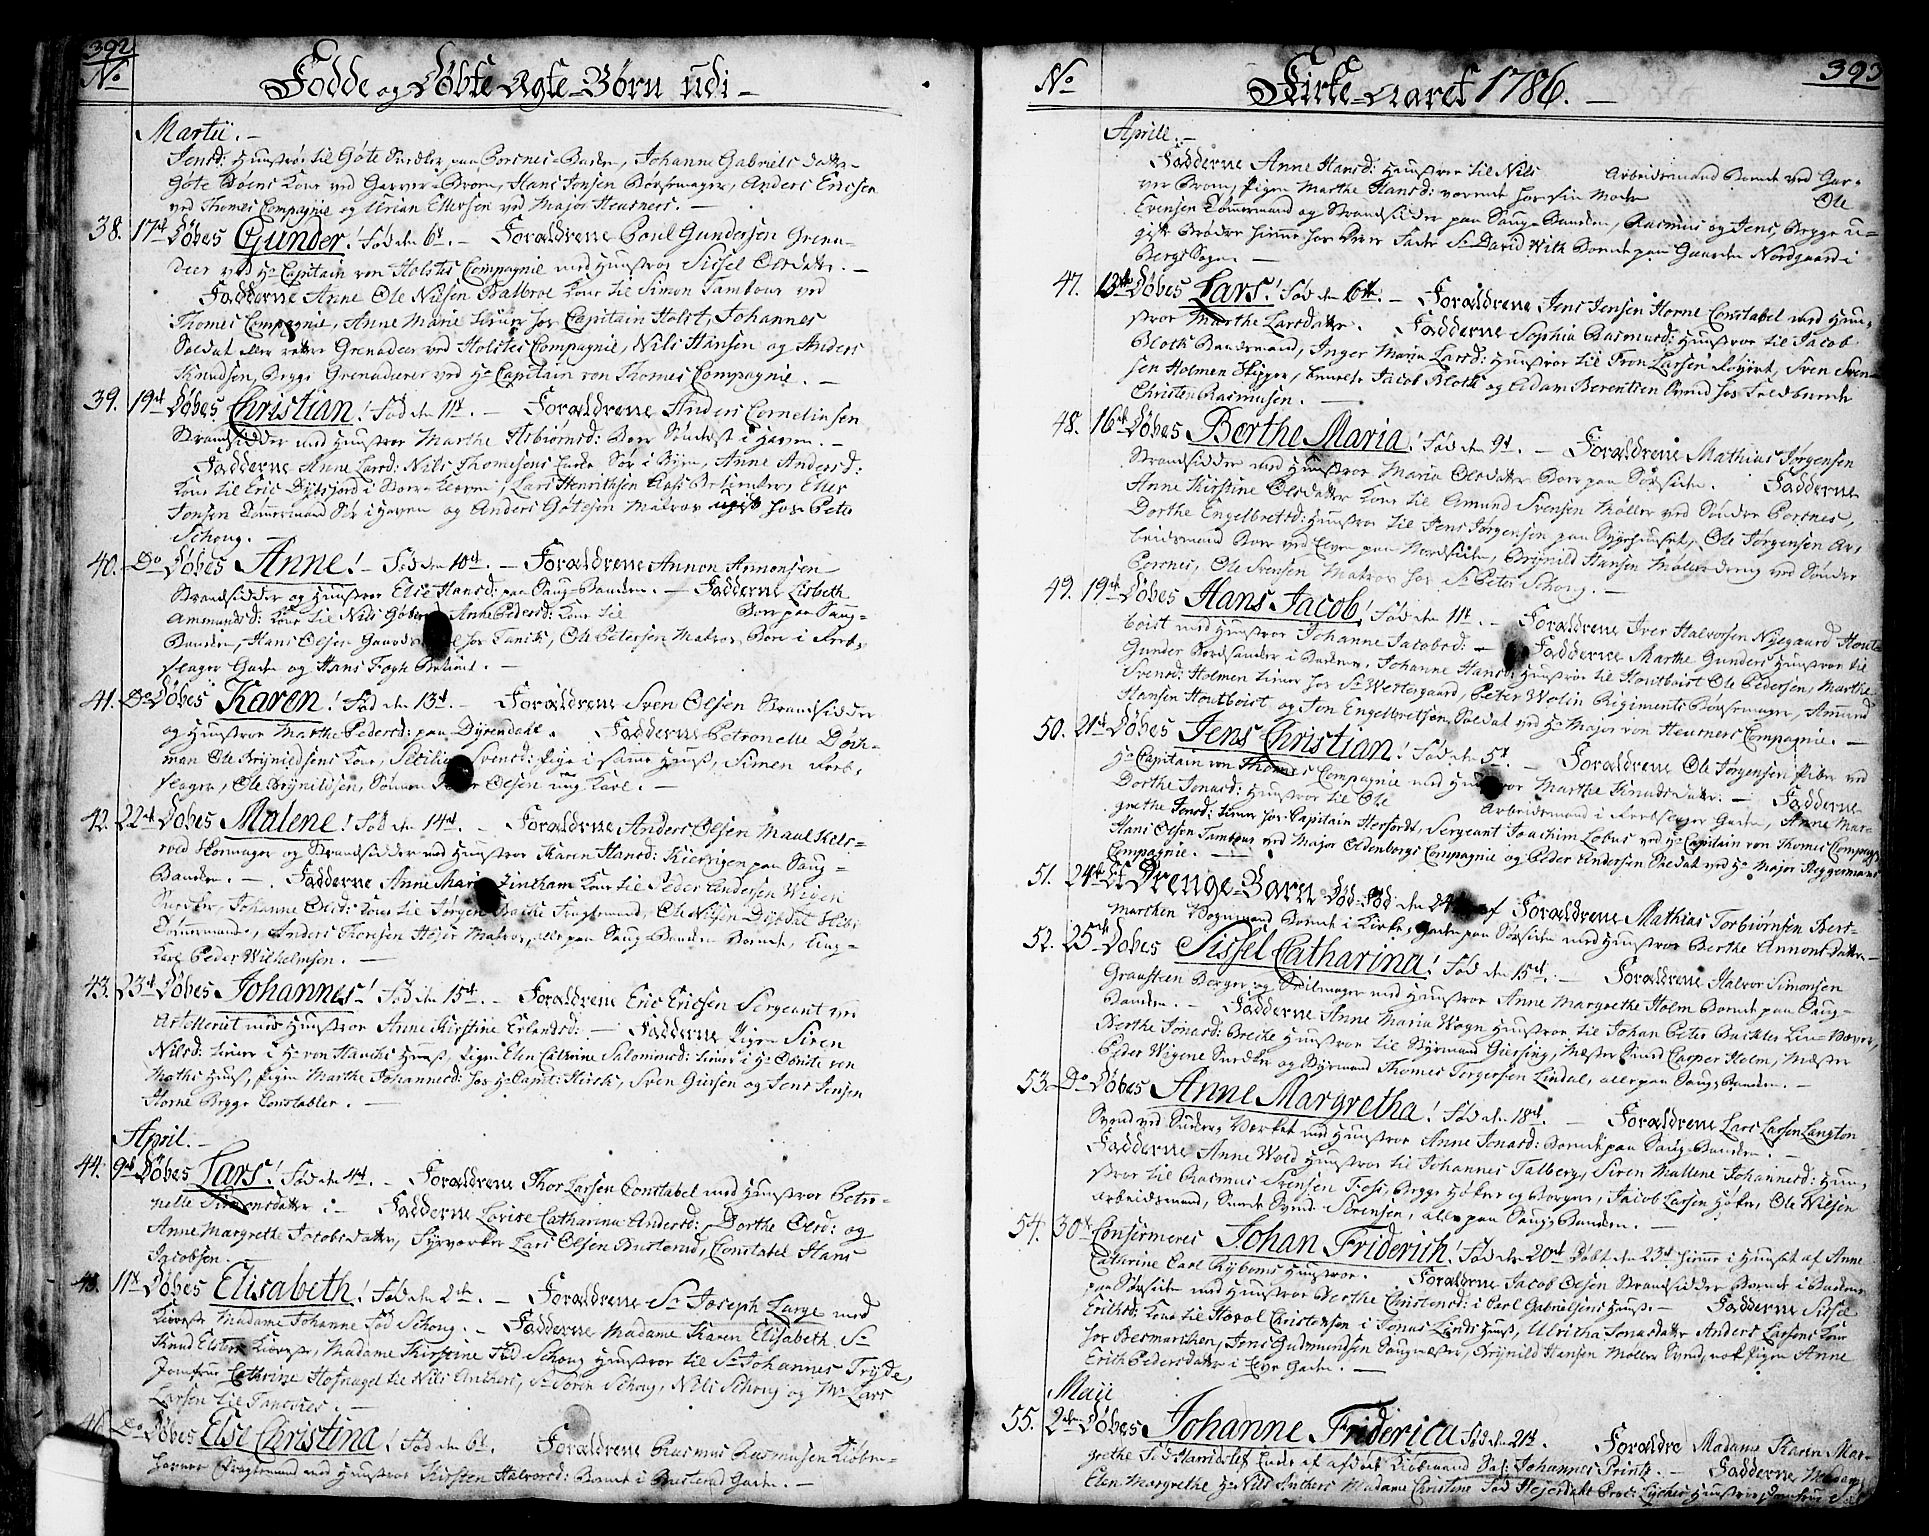 392
No
Fødde og Døbte Ægte-Børn udi -
Martii. -
Jensd: Hustrøe til Gøte Snedker paa Porsnes-Banden, Johanne Gabriels datter
Gøte Bøens Kone ved Garver-Broen, Hans Jonsen Børsemager, Anders Ericsen
ved Thomes Compagnie og Urian Ellefsen ved Major Heusners. -
38. 17de Døbes Gunder! Fød den 6t. - Forældrene Poul Gundersen Grena-
deer ved Hr Capitain von Holstes Compagnie med Hustroe Sissel Olsdatter. -
Fadderne Anne Ole Nilsen Balbroe Kone til Simon Tambour ved
Thomes Compagnie, Anne Marie tiener hos Capitain Holst, Johannes
Soldat eller rettere Grenadeer ved Holstes Compagnie, Nils Hansen og Anders
Knudsen, Begge Grenaderer ved Hr Capitain von Thomes Compagnie. -
39. 19de Døbes Christian! Fød den 11t. - Forældrene Anders Corneliusen
Strandsidder med Hustroe Marthe Asbiørnsd: Boer Sønderst i Haven. -
Fadderne Anne Larsd: Nils Thomesens Enke Sør i Byen, Anne Andersd:
Kone til Eric Dybsjord i Store-Leeren, Lars Henrichsen Aass Betienter, Elles
Jonsen Tømmermand Sør i Haven og Anders Gøtesen Matros ugift hos Peter
Schong. -
40. Do Døbes Anne! - Fød den 10de. - Forældrene Annon Annonsen
Strandsidder og Hustroe Else Hansd: paa Saug-Banden. - Fadderne Lisbeth
Ammundsd: Kone til Nils Anne Pedersd: Kone til Boer paa Saug-
Banden, Hans Olsen hos Tanche, Ole Petersen Matros, Boer i Reeb-
slager Gaden og Hans Fogh Betient. -
41. Do Døbes Karen! Fød den 13d. - Forældrene Sven Olsen Strandsidder
og Hustroe Marthe Pedersd: paa Dyrendahl. Fadderne Petronelle Døk-
man Ole Brynildsens Kone, Sicilia Svensd: Pige i samme Huus, Simen Reeb-
slager, Ole Brynildsen, Sønnen Olsen ung Karl. -
42. 22de Døbes Malene! Fød den 14d. - Forældrene Anders Olsen Maulkels-
rød Skoemager og Strandsidder med Hustroe Karen Hansd: Kiersgen paa Saug-
Banden. - Fadderne Anne Maria Kone til Peder Andersen Wigen
Snedker, Johanne Olsd: Kone til Jørgen Fragtemand, Ole Nilsen Dybdal Skibs
Tømmermand, Anders Thoresen Høyer Matros, alle paa Saug-Banden Boende, Ung-
Karl Peder Wilhelmsen. -
43. 23de Døbes Johannes! Fød den 15de. - Forældrene Eric Ericsen Sergeant ved
Artilleriet med Hustroe Anne Kirstine Erlandsd: - Fadderne Pigen Siren
Nilsd: tiener i Hr von Hauchs Huus, Pigen Elen Cathrine Salomonsd: tiener i Hr Obriste von
Maths Huus, Pigen Marthe Johannesd: hos Hr Capit: Hirsch, Sven Giersen og Jens Jensen
Horne Begge Constabler. -
April. -
44. 9de Døbes Lars! Fød den 4d. - Forældrene Thor Larsen Constabel med Hustroe Peter-
nelle Simensdatter: - Fadderne Lovise Catharina Andersd: Dorthe Olsd: og
Anne Margrethe Jacobsdatter, Fyrværker Lars Olsen Busterud, Constabel Hans
Jacobsen.
45. 11te Døbes Elisabeth! Fød den 2den. - Forældrene Sr Joseph Large med
Kiæreste Madame Johanne Fød Schong. - Fadderne Madame Karen Elisabeth Sr
Knud Elster Kiæreste, Madame Kirstine Fød Schong Hustroe til Sr Johannes Tryde,
Jomfrue Cathrine Hofnagel til Nils Anthers, Sr Søren Schong, Nils Schong og Mr Lars
Larsen til Tanches. -
46. Do Døbes Else Christina! Fød den 6t. Forældrene Rasmus Rasmusen Kiøben-
havner Fragtemand med Hustroe Kirsten Halvorsd: Boende i Busterud Gaden. -
393
No
Kirke-Aaret 1786. -
Aprill. -
Fadderne Anne Hansd: Hustroe til Nils Arbeidsmand Boende ved Gar-
ver Broen, Pigen Marthe Hansd: værende hos sin Moder Ole
Evensen Tømmermand og Strandsidder paa Saug-Banden, Rasmus og Jens, Begge u-
gifte Brødre hjemme hos deres Fader Sr David With Boende paa Gaarden Nordgaard i
Bergs Sogn. -
47. 13de Døbes Lars! Fød den 6te. - Forældrene Jens Jensen Horne Constabel med Hu-
stroe Marthe Larsdatter. Fadderne Sophia Rasmusd: Hustroe til Jacob
Bloch Bandemand, Inger Maria Larsd: Hustroe til Tron Larsen Røyert, Sven Sven-
sen Holmen Skipper, Jacob Bloch og Adam Berentsen Svend hos Toldbetiente
Christen Rasmusen. -
48. 16de Døbes Berthe Maria! Fød den 9d. - Forældrene Mathias Jørgensen
Strandsidder med Hustroe Maria Olsdatter Boer paa Sørsiden. Fadderne
Anne Kirstine Olsdatter Kone til Amund Svensen Møller ved Søndre Porsnes,
Dorthe Engelbretsd: Hustroe til Jens Jørgensen paa Sygehuuset, Ole Jørgensen Ar-
beidsmand Boer ved Elven paa Nordsiden, Brynild Hansen Møllerdreng ved Søndre
Porsnes, Ole Svensen Matros hos Sr Peter Schong. -
49. 19de Døbes Hans Jacob! Fød den 11t. - Forældrene Iver Halvorsen Nyegaard Hout-
boist med Hustroe Johanne Jacobsd: - Fadderne Marthe Gunders Hustroe til
Gunder Nordsander i Banden, Johanne Hansd: Hustroe til Houtboist Ole Pedersen, Marthe
Svensd: Holmen tiener hos Sr Westergaard, Peter Wolin Regiments Børsemager, Amund
Hansen Houtboist og Jon Engelbretsen Soldat ved Hr Major von Heusners Compagnie. -
50. 21de Døbes Jens Christian! Fød den 5t. - Forældrene Ole Jørgensen Piber ved
Hr Capitain von Thomes Compagnie med Hustroe Marthe Knudsdatter. - Fadderne
Dorthe Jonasd: Hustroe til Ole Arbeidsmand i Reebslager Gaden, Anne Mar-
grethe Jonsd: tiener hos Capitain Hersfordt, Sergeant Joachim Lobus ved Hr Capitain von Thomes Compagnie
Hans Olsen Tambour ved Major Oldenborgs Compagnie og Peder Andersen Soldat ved Hr Major Heggermans
Compagnie. -
51. 24de Et Drenge-Barn Død-Fød den 24de af Forældrene Mathias Torbiørnsen Best-
marchen Vognmand Boende i Kirke-Gaden paa Sørsiden med Hustroe Berthe Annonsdatter -
52. 25de Døbes Sissel Catharina! Fød den 15de. - Forældrene Halvor Simonsen
Graasteen Borger og Seilmager med Hustroe Anne Margrethe Holm Boende paa Saug-
Banden. - Fadderne Anne Maria Wogn Hustroe til Johan Peter Backler Line Wæver,
Berthe Jonasd: Breche Hustroe til Styrmand Giersing, Mæster Smed Casper Holm, Mæster
Peder Wigene Snedker og Styrmand Thomes Torgersen Lindal, alle paa Saug-Banden. -
53. Do Døbes Anne Margretha! Fød den 18de. - Forældrene Lars Larsen Langton
Svend ved Sucker Værket med Hustroe Anne Jonasd: Boende paa Saug-Banden. -
Fadderne Anne Wold Hustroe til Johannes Talberg, Siren Mallene Johannesd: Hu-
stroe til Rasmus Svensen Foss, Begge Høker og Borger, Jacob Larsen Høker, Ole Nilsen
Arbeidsmand, Smede Svend Sørensen, alle paa Saug-Banden. -
54. 30te Confirmeres Johan Friderich! Fød den 20de Døbt den 23de hjemme i Huuset af Anne
Cathrine Carl Ryboms Hustroe. Forældrene Jacob Olsen Strandsidder Boende i Banden
paa Sørsiden med Hustroe Berthe Christensd: i Carl Gabrielsens Huus - Fadderne Sissel
Erichsd: Kone til Hovel Christensen i Jonas Linds Huus, Ulritha Jonasdatter Anders Larsens Kone
hos Besmarchen, Jens Gudmundsen Saugmester, Brynild Hansen Møller Svend, nok Pigen Anne
Erich Pedersdatter i Elve Gaden. -
Maii
55. 2den Døbes Johanne Friderica Fød den 21de. Forældre Madame Karen Mar-
grethe Fød Harridslef Enke af afdøde Kiøbmand Sal: Johannes Printz. - Fadderne Madame
Elen Margrethe Hr Nils Anthers Madame Christine Fød Hejerdahl Proc: Lyches Hustroe, Jomfrue